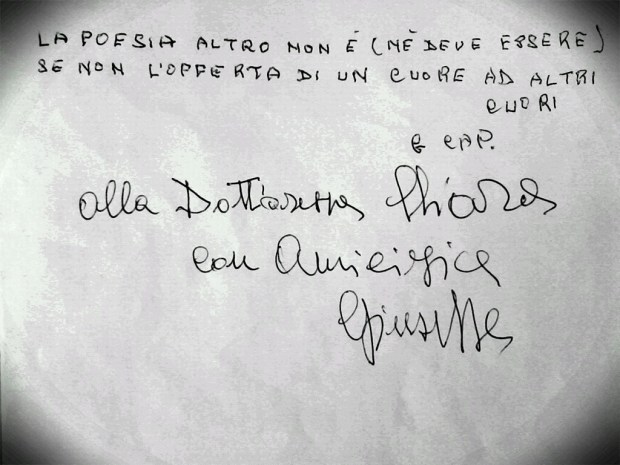 LA POESIA ALTRO NON È (NÈ DEVE ESSERE)
SE NON L'OFFERTA DI UN CUORE AD ALTRI
CUORI
G CAP.
alla Dottoressa Chiara
con Amicizia
Giuseppe